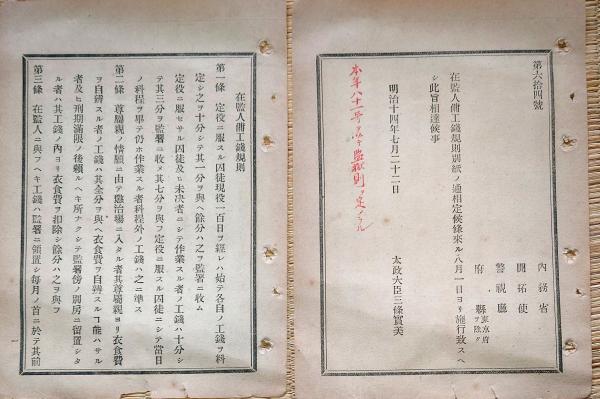 第六拾四號
內務省
開拓使
警視廳
府縣東京府ヲ除ク
在監人傭工錢規則別紙ノ通相定候條來ル八月一日ヨリ施行致スヘ
シ此旨相達候事
明治十四年七月二十二日
太政大臣三條實美
本年八十一号ヲ以テ監獄則ヲ定メラル
在監人傭工錢規則
第一條 定役ニ服スル囚徒現役一百日ヲ經レハ始テ各自ノ工錢ヲ料
定シ之ヲ十分シテ其一分ヲ與ヘ餘分ハ之ヲ監署ニ收ム
定役ニ服セサル囚徒及ヒ未決者ニシテ作業スル者ノ工錢ハ十分シ
テ其三分ヲ監署ニ收メ其七分ヲ與フ定役ニ服スル囚徒ニシテ當日
ノ科程ヲ畢テ仍ホ作業スル者科程外ノ工錢ハ之ニ準ス
第二條 尊屬親ノ情願ニ由テ懲治場ニ入タル者其尊屬親ヨリ衣食費
ヲ自辨スル者ノ工錢ハ其全分ヲ與ヘ衣食費ヲ自辨スルコ能ハサル
者及ヒ刑期滿限ノ後賴ルヘキ所ナクシテ監署傍ノ別房ニ留置シタ
ル者ハ其工錢ノ內ヨリ衣食費ヲ扣除シ餘分ハ之ヲ與フ
第三條 在監人ニ與フヘキ工錢ハ監署ニ領置シ每月ノ首ニ於テ其前